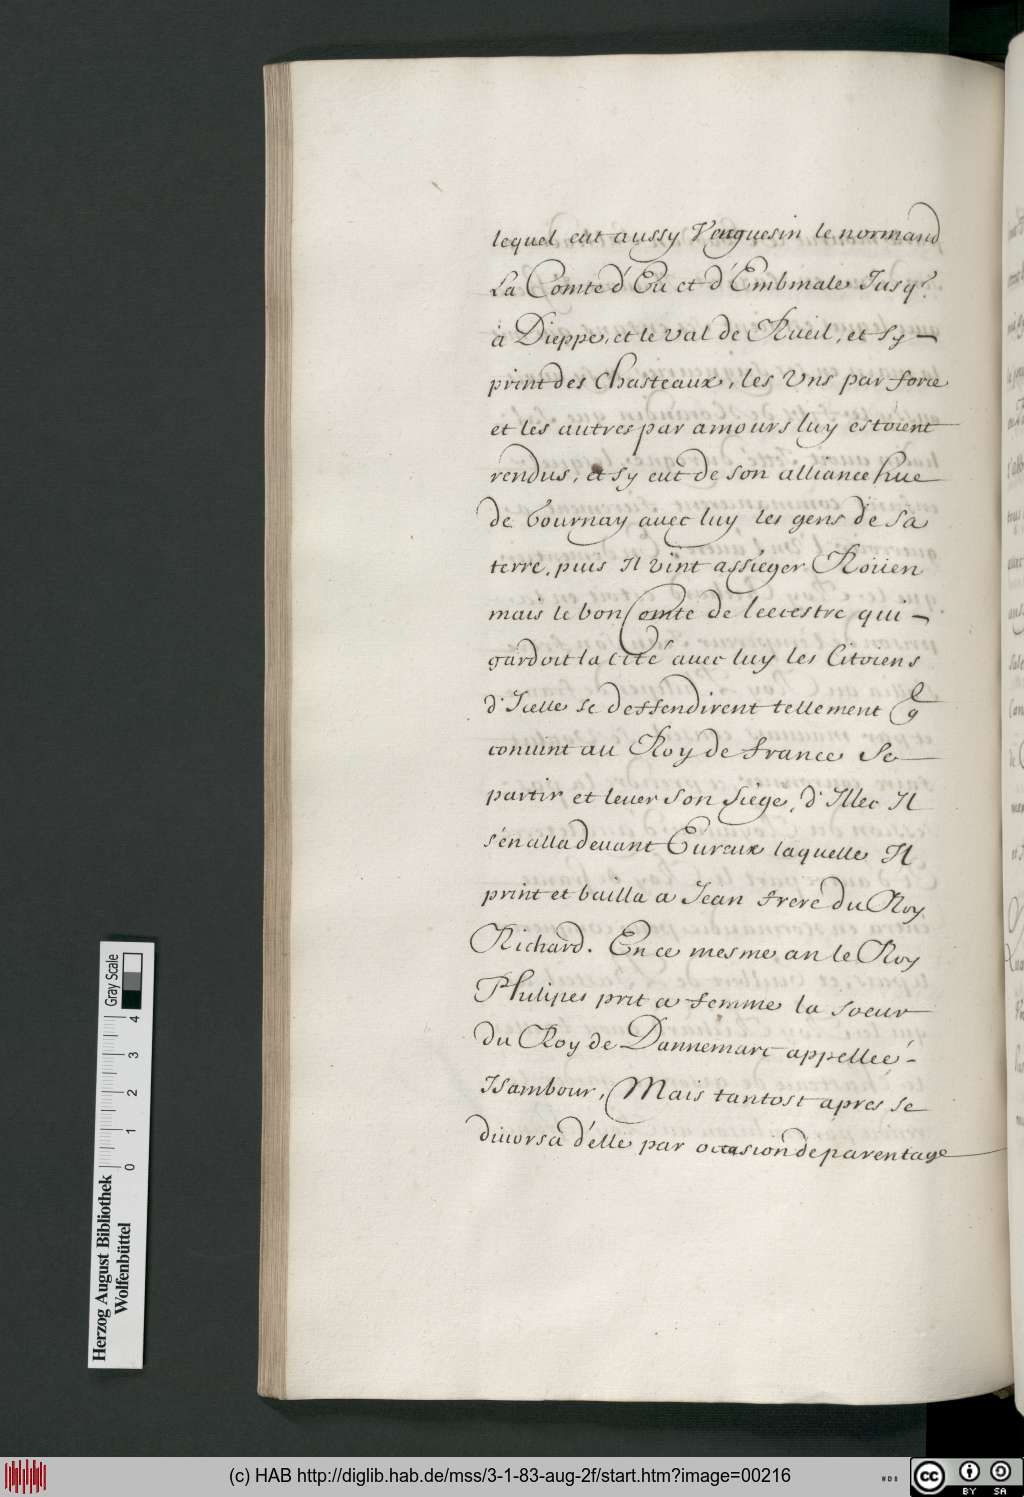 lequel eut aussy Veuguesin le normand
La Comte d'Eu et d'Embmale Jusq.
à Dieppe, et le val de Rueil, et sy
print des Chasteaux, les Uns par force
et les autres par amours luy estoient
rendus, et sy eut de son alliance hue
de Tournay avec luy les gens de sa
terre, puis Il vint assieger Roüen
mais le bon Comte de leecestre qui
gardoit la cité avec luy les Citoiens
d'Icelle se deffendirent tellement q
convint au Roy de france se
partir et lever son siege, d'Illec Il
s'én alla devant Eureux laquelle Il
print et bailla a Jean frere du Roy
Richard. En ce mesme an le Roy
Philipes prit a femme la soeur
du Roy de Dannemarc appelleé
Isambour, Mais tantost apres se
divorsa d'elle par occasion de parentage
Herzog August Bibliothek
Wolfenbüttel
0 1 2 3 4
Gray Scale
(c) HAB http://diglib.hab.de/mss/3-1-83-aug-2f/start.htm?image=00216
WDB
cc BY SA